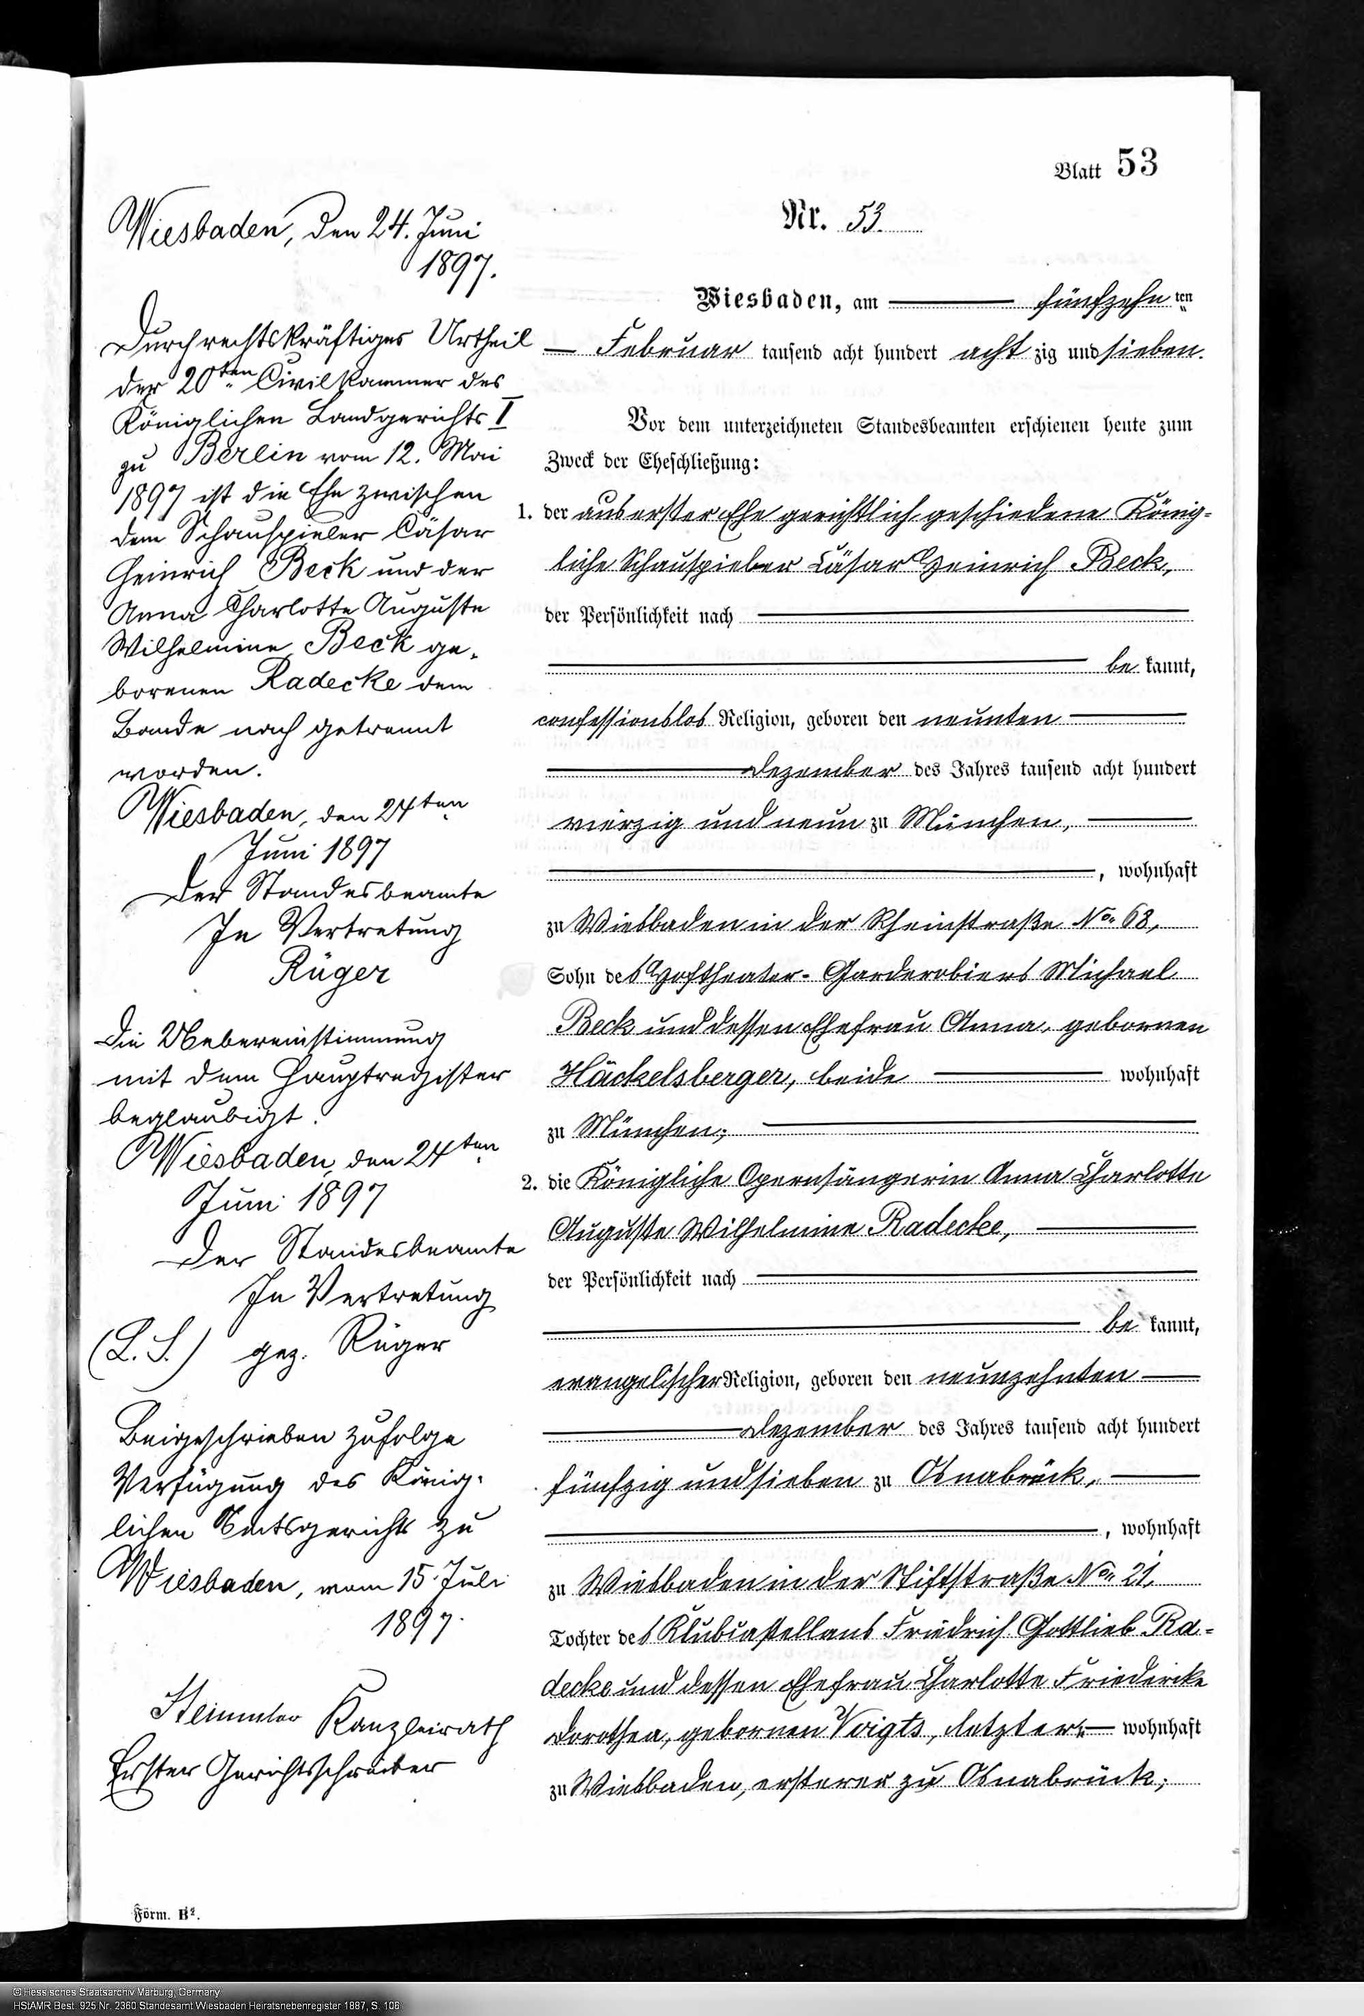 Blatt 53
Wiesbaden, den 24. Juni
1897.
Durch rechtskräftiges Urtheil
der 20ten Civilkammer des
Königlichen Landgerichts I
zu Berlin vom 12. Mai
1897 ist die Ehe zwischen
dem Schauspieler Cäsar
Heinrich Beck und der
Anna Charlotte Auguste
Wilhelmine Beck ge-
borenen Radecke dem
Bande nach getrennt
worden.
Wiesbaden, den 24ten
Juni 1897
Der Standesbeamte
In Vertretung
Rüger
Die Uebereinstimmung
mit dem Hauptregister
beglaubigt.
Wiesbaden, den 24ten
Juni 1897
Der Standesbeamte
In Vertretung
(L. S.) gez. Rüger
Beigeschrieben zufolge
Verfügung des König-
lichen Amtsgerichts zu
Wiesbaden, vom 15. Juli
1897.
Kanzleirath
Erster Gerichtsschreiber
Nr. 53.
Wiesbaden, am fünfzehnten
Februar tausend acht hundert achtzig und sieben.
Vor dem unterzeichneten Standesbeamten erschienen heute zum
Zweck der Eheschließung:
1. der aus erster Ehe gerichtlich geschiedene König-
liche Schauspieler Cäsar Heinrich Beck,
der Persönlichkeit nach
bekannt,
confessionslos Religion, geboren den neunten
Dezember des Jahres tausend acht hundert
vierzig und neun zu München,
, wohnhaft
zu Wiesbaden in der Rheinstraße No. 68,
Sohn des Hoftheater-Garderobiers Michael
Beck und dessen Ehefrau Anna, gebornen
Häckelsberger, beide wohnhaft
zu München;
2. die Königliche Opernsängerin Anna Charlotte
Auguste Wilhelmine Radecke,
der Persönlichkeit nach
bekannt,
evangelischer Religion, geboren den neunzehnten
Dezember des Jahres tausend acht hundert
fünfzig und sieben zu Osnabrück,
, wohnhaft
zu Wiesbaden in der Stiftstraße No. 21,
Tochter des Klubcastellans Friedrich Gottlieb Ra-
decke und dessen Ehefrau Charlotte Friedericke
Dorothea, gebornen Voigts, letztere wohnhaft
zu Wiesbaden, ersterer zu Osnabrück;
Form. B².
© Hessisches Staatsarchiv Marburg, Germany
HStAMR Best. 925 Nr. 2360 Standesamt Wiesbaden Heiratsnebenregister 1887, S. 106